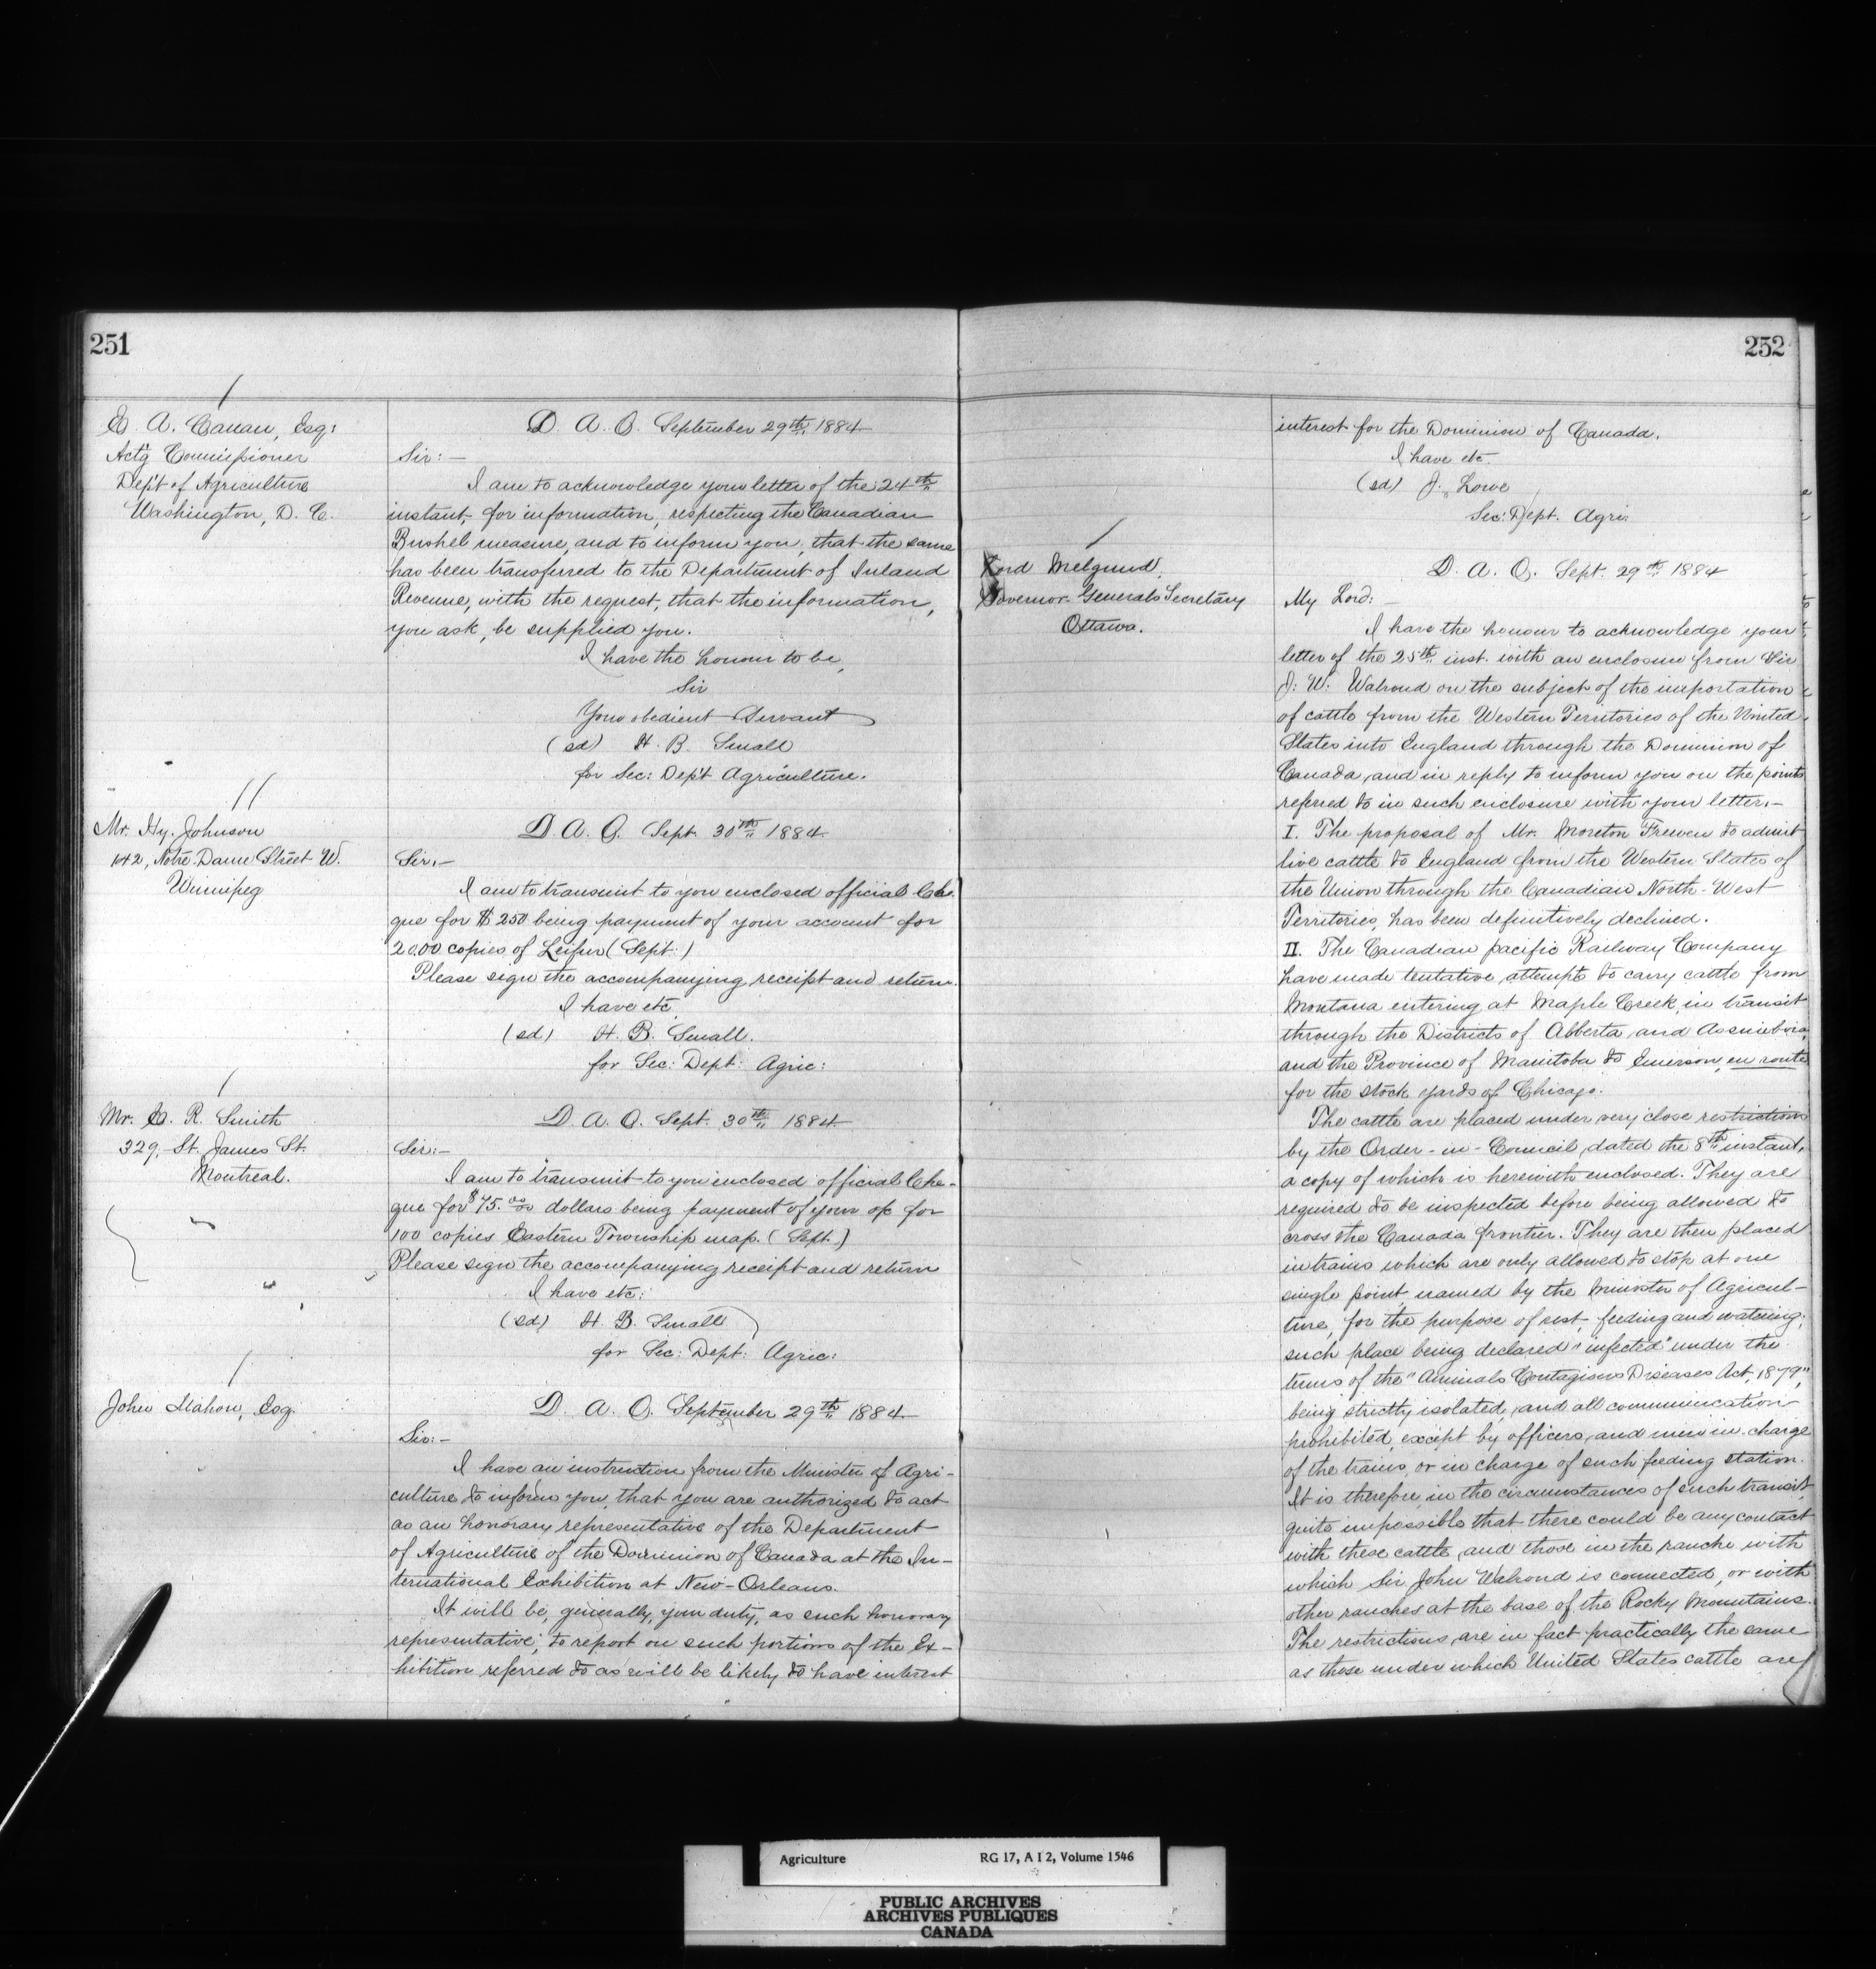 251
E. A. Carman, Esq:
Act'g Commissioner
Dep't of Agriculture
Washington, D. C.
D. A. O. September 29th 1884
Sir:—
I am to acknowledge your letter of the 24th
instant, for information, respecting the Canadian
Bushel measure, and to inform you, that the same
has been transferred to the Department of Inland
Revenue, with the request, that the information,
you ask, be supplied you.
I have the honour to be,
Sir
Your obedient Servant
(sd) H. B. Small
for Sec: Dep't Agriculture.
Mr. Hy. Johnson
142, Notre Dame Street W.
Winnipeg
D. A. O. Sept. 30th 1884
Sir,—
I am to transmit to you enclosed official Che-
que for $250 being payment of your account for
2000 copies of Leifur (Sept:)
Please sign the accompanying receipt and return.
I have etc.
(sd) H. B. Small.
for Sec: Dept: Agric:
Mr. E. R. Smith
329, St. James St.
Montreal.
D. A. O. Sept. 30th 1884
Sir:—
I am to transmit to you enclosed official Che-
que for $75.00 dollars being payment of your a/c for
100 copies Eastern Township map. (Sept.)
Please sign the accompanying receipt and return
I have etc:
(sd) H. B. Small
for Sec: Dept: Agric:
John Mahon, Esq.
D. A. O. September 29th 1884
Sir:—
I have an instruction from the Minister of Agri-
culture to inform you, that you are authorized to act
as an honorary representative of the Department
of Agriculture of the Dominion of Canada at the In-
ternational Exhibition at New-Orleans.
It will be, generally, your duty, as such honorary
representative, to report on such portions of the Ex-
hibition referred to as will be likely to have interest
252
interest for the Dominion of Canada.
I have etc.
(sd) J. Lowe
Sec: Dept. Agri:
Lord Melgund,
Governor-General's Secretary
Ottawa.
D. A. O. Sept. 29th 1884
My Lord:
I have the honour to acknowledge your
letter of the 25th inst. with an enclosure from Sir
J: W: Walrond on the subject of the importation
of cattle from the Western Territories of the United
States into England through the Dominion of
Canada, and in reply to inform you on the points
referred to in such enclosure with your letter.—
I. The proposal of Mr. Moreton Frewen to admit
live cattle to England from the Western States of
the Union through the Canadian North-West
Territories, has been definitively declined.
II. The Canadian pacific Railway Company
have made tentative attempts to carry cattle from
Montana entering at Maple Creek, in transit
through the Districts of Alberta, and Assiniboia,
and the Province of Manitoba to Emerson, en route
for the stock yards of Chicago.
The cattle are placed under very close restrictions
by the Order-in-Council, dated the 8th instant,
a copy of which is herewith enclosed. They are
required to be inspected before being allowed to
cross the Canada frontier. They are then placed
in trains which are only allowed to stop at one
single point, named by the Minister of Agricul-
ture, for the purpose of rest, feeding and watering;
such place being declared "infected" under the
terms of the "Animals Contagious Diseases Act, 1879",
being strictly isolated, and all communication
prohibited, except by officers, and men in charge
of the trains, or in charge of such feeding station.
It is therefore, in the circumstances of such transit,
quite impossible that there could be any contact
with these cattle, and those in the ranche with
which Sir John Walrond is connected, or with
other ranches at the base of the Rocky Mountains.
The restrictions are in fact practically the same
as those under which United States cattle are
Agriculture RG 17, A I 2, Volume 1546
PUBLIC ARCHIVES
ARCHIVES PUBLIQUES
CANADA